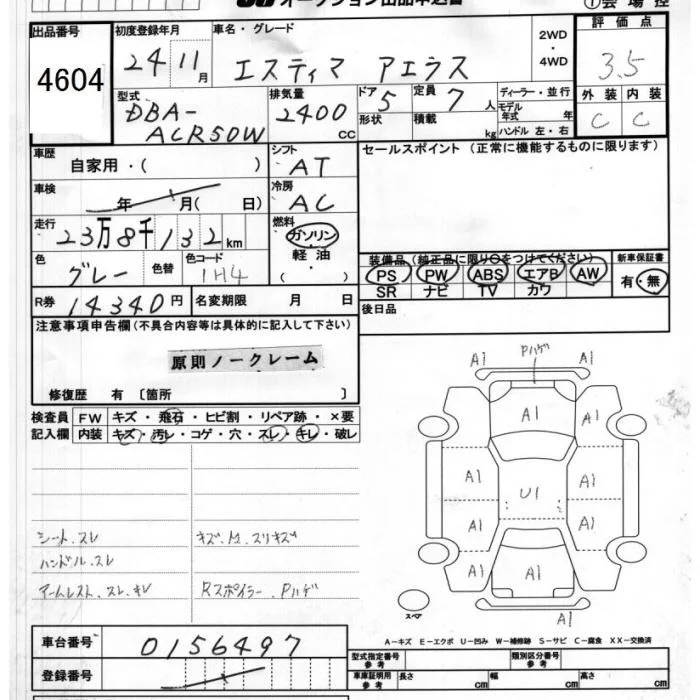 オークション出品申込書
①会場控
出品番号
4604
初度登録年月
24 11 月
車名・グレード
エスティマ アエラス
2WD
・
4WD
評価点
3.5
外装 内装
C C
型式
DBA-
ACR50W
排気量
2400
CC
ドア
5
形状
定員
7 人
積載
kg
ディーラー・並行
モデル
年式 年
ハンドル 左・右
車歴
自家用・( )
シフト
AT
セールスポイント (正常に機能するものに限ります)
車検
年 月( 日)
冷房
AC
走行
23万8千132 km
燃料
ガソリン
軽油
( ・ )
色
グレー
色替
色コード
1H4
装備品 (純正品に限り○をつけてください)
PS PW ABS エアB AW
SR ナビ TV カワ
新車保証書
有・無
R券 14340 円
名変期限 月 日
後日品
注意事項申告欄(不具合内容等は具体的に記入して下さい)
原則ノークレーム
修復歴 有 〔箇所 〕
検査員
記入欄
FW キズ・飛石・ヒビ割・リペア跡・×要
内装 キズ・汚レ・コゲ・穴・スレ・キレ・破レ
シート.スレ
キズ.凹.スリキズ
ハンドル.スレ
アームレスト.スレ.キレ
Rスポイラー.Pハゲ
A1 Pハゲ A1
A1
A1 A1
U1
A1 A1
A1
A1
スペア
A-キズ E-エクボ U-凹み W-補修跡 S-サビ C-腐食 XX-交換済
車台番号
0156497
登録番号
型式指定番号
参考
類別区分番号
参考
車庫証明用
参考
長さ cm 幅 cm 高さ cm